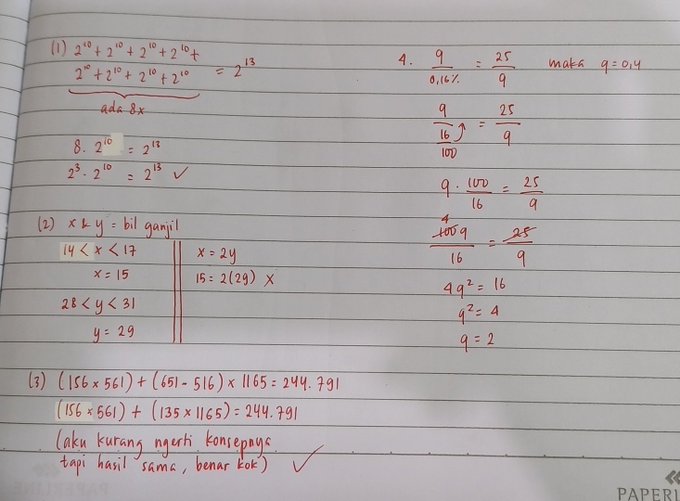 (1) 2¹⁰ + 2¹⁰ + 2¹⁰ + 2¹⁰ +
2¹⁰ + 2¹⁰ + 2¹⁰ + 2¹⁰ = 2¹³
ada 8x
8 . 2¹⁰ = 2¹³
2³ . 2¹⁰ = 2¹³ ✓
(2) x & y = bil ganjil
14 < x < 17
x = 15
28 < y < 31
y = 29
x = 2y
15 = 2(29) X
(3) (156 x 561) + (651 - 516) x 1165 = 244.791
(156 x 561) + (135 x 1165) = 244.791
(aku kurang ngerti konsepnya
tapi hasil sama, benar kok) ✓
4. q/0,16% = 25/q maka q = 0,4
q/(16/100) = 25/q
q . 100/16 = 25/q
4
100q/16 = 25/q
4q² = 16
q² = 4
q = 2
PAPERL